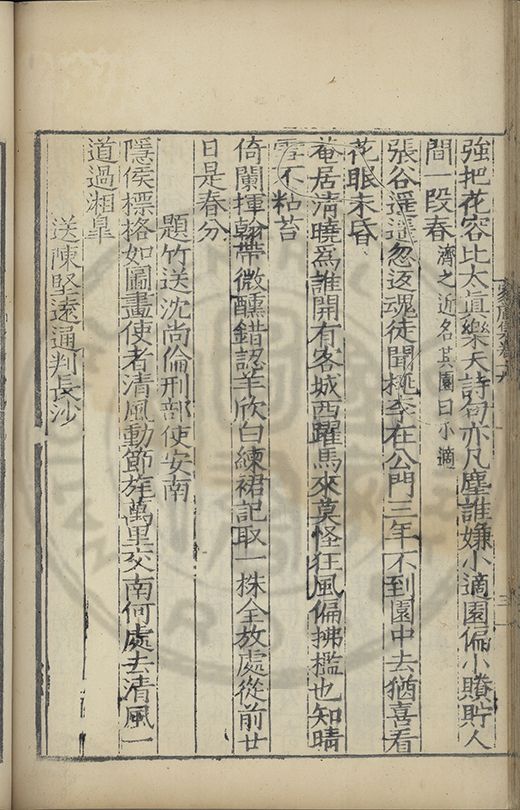 強把花容比太真樂天詩句亦凡塵誰嫌小適園偏小賸貯人
間一段春濟之近名其園曰小適
張谷遥遥忽返魂徒聞桃李在公門三年不到園中去猶喜看
花眼未昏
菴居清曉爲誰開有客城西躍馬來莫怪狂風偏拂檻也知晴
雪不粘苔
倚闌揮翰帶微醺錯認羊欣白練裙記取一株全放處從前廿
日是春分
題竹送沈尚倫刑部使安南
隱侯標格如圖畫使者清風動節旄萬里交南何處去清風一
道過湘皐
送陳堅遠通判長沙